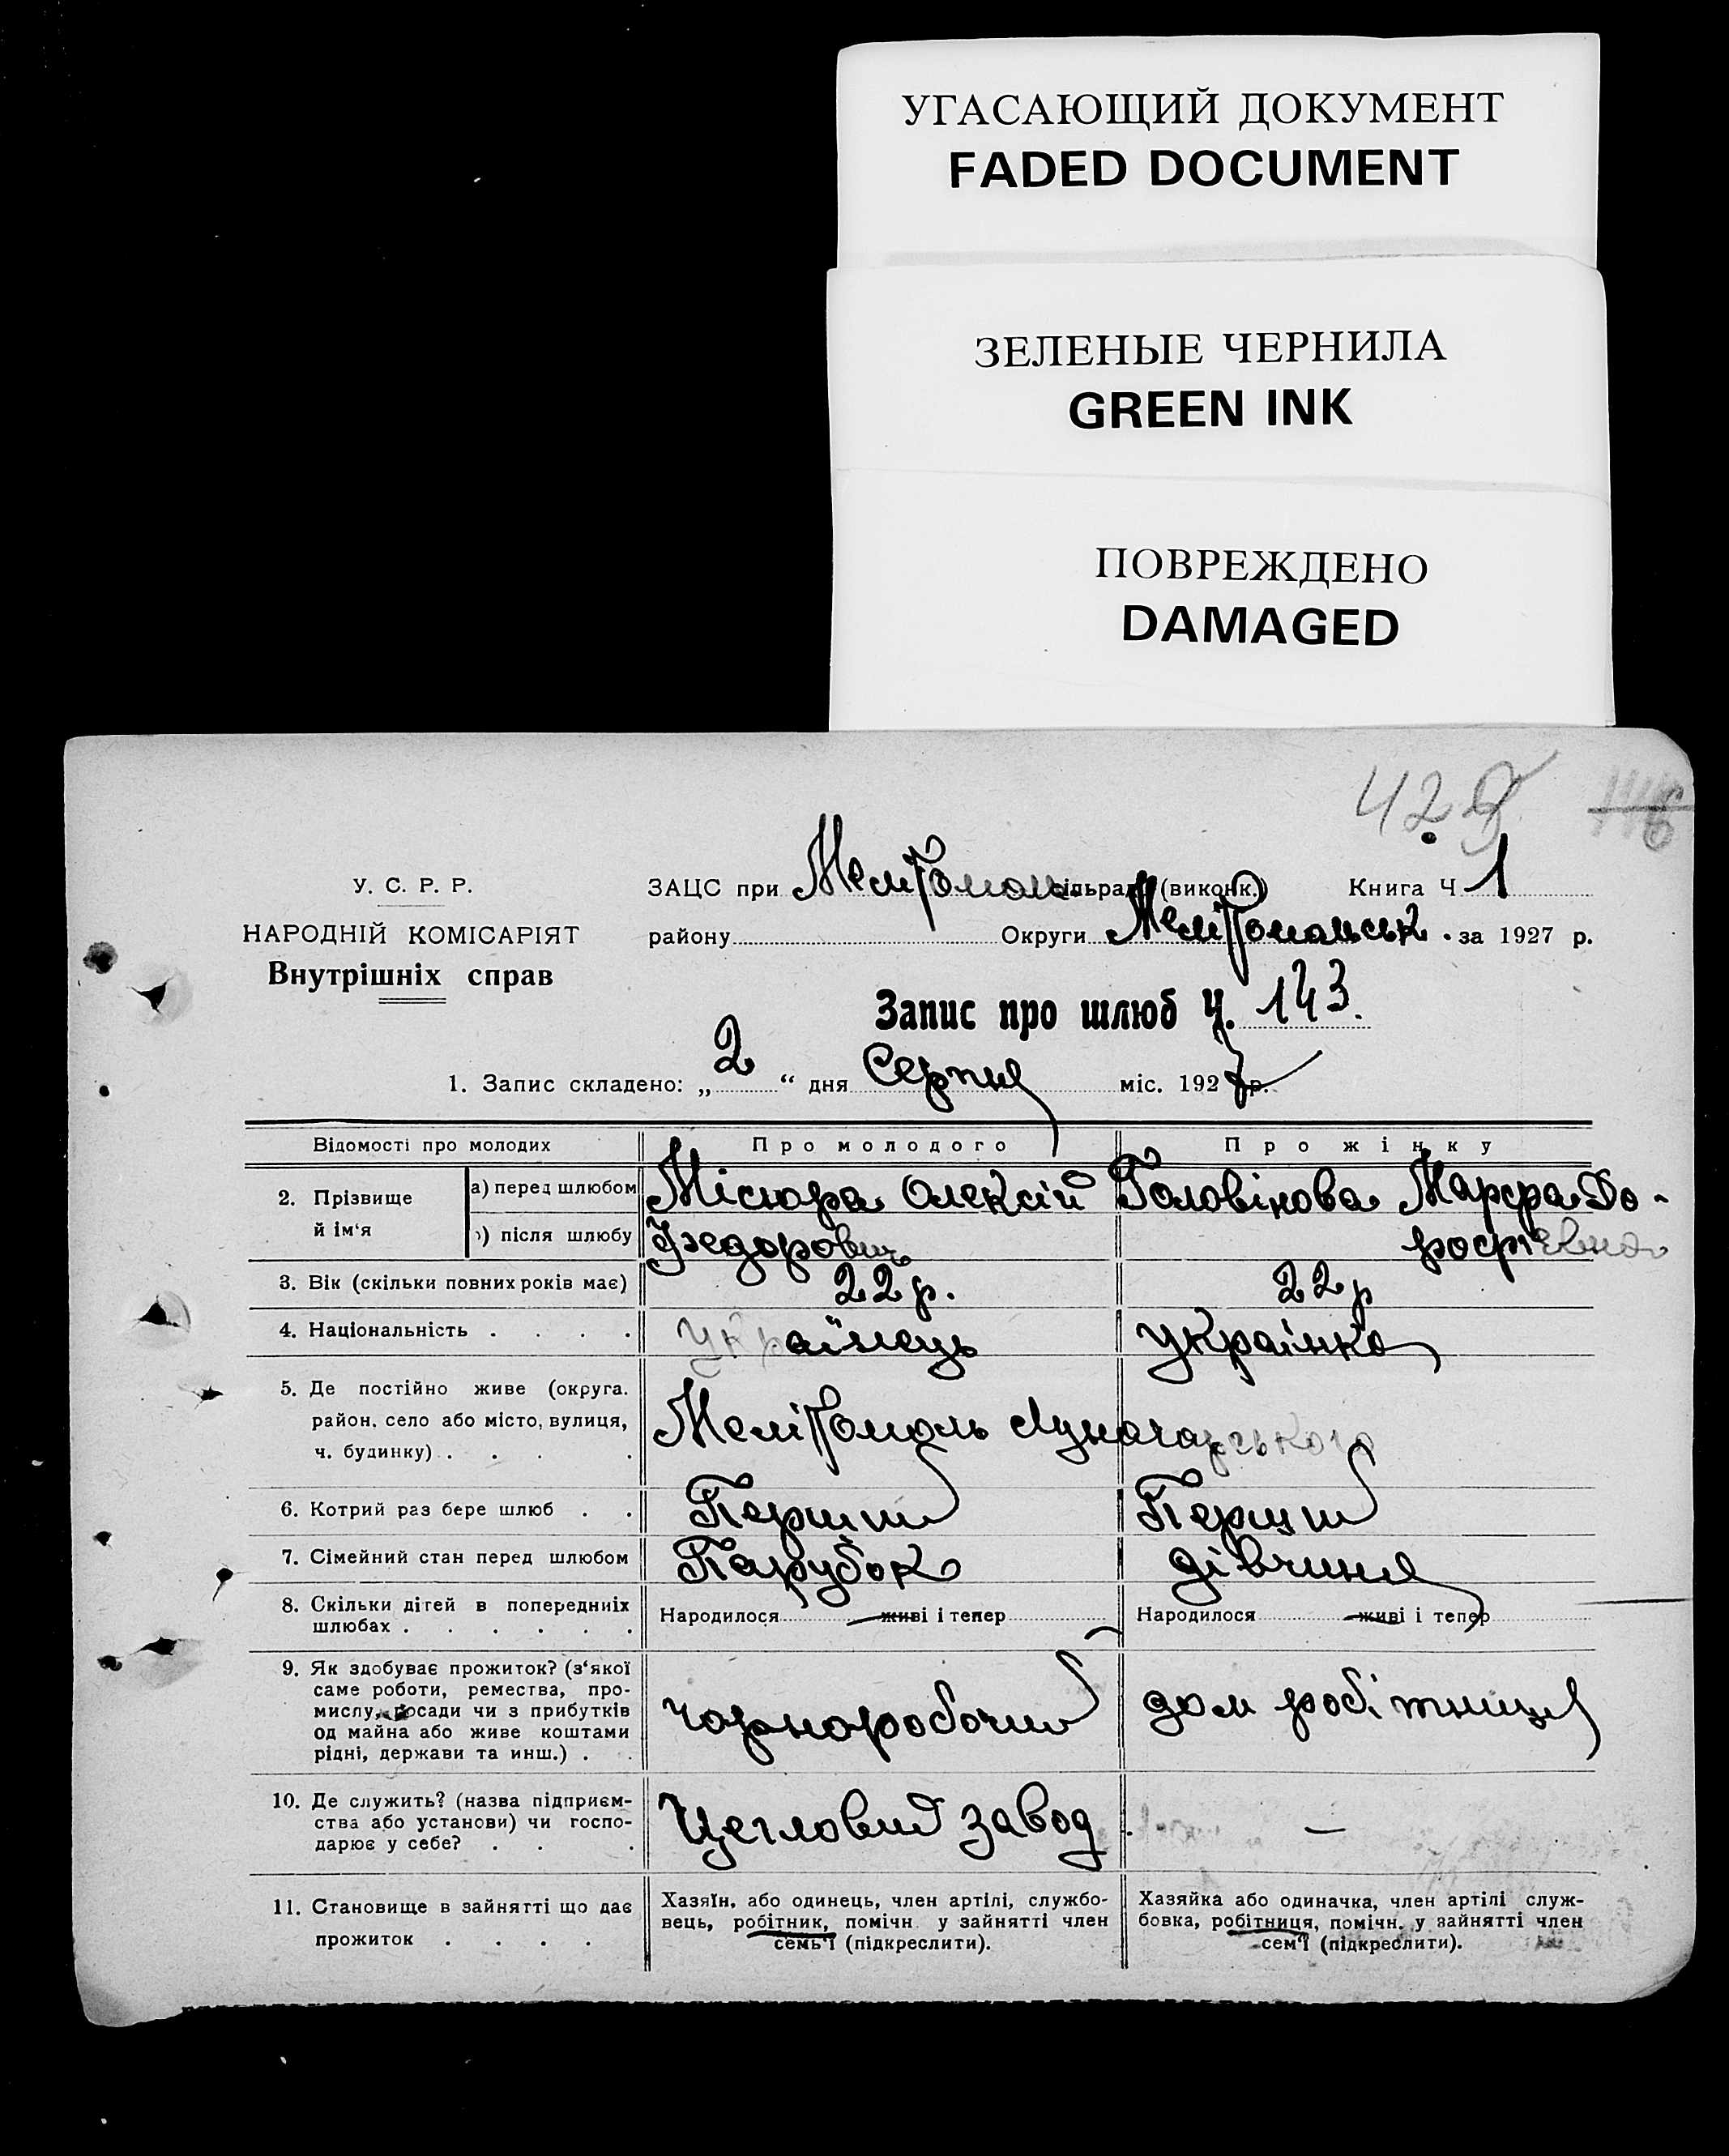 УГАСАЮЩИЙ ДОКУМЕНТ
FADED DOCUMENT
ЗЕЛЕНЫЕ ЧЕРНИЛА
GREEN INK
ПОВРЕЖДЕНО
DAMAGED
42
116
У. С. Р. Р.
НАРОДНІЙ КОМІСАРІЯТ
Внутрішніх справ
ЗАЦС при Мелітопол. сільрад (виконк.) Книга Ч 1
району Округи Мелітопольськ. за 1927 р.
Запис про шлюб Ч. 143.
1. Запис складено: „2“ дня Серпня міс. 1927 р.
Відомості про молодих Про молодого Про жінку
2. Прізвище й ім‘я
а) перед шлюбом Місюра Олексій Головінова Марфа До-
) після шлюбу Федорович рофієвна
3. Вік (скільки повних років має) 22 р. 22 р
4. Національність . . . . українець українка
5. Де постійно живе (округа.
район, село або місто, вулиця,
ч. будинку) . . . . Мелітополь Луначарського
6. Котрий раз бере шлюб . . Перший Перший
7. Сімейний стан перед шлюбом Парубок дівчина
8. Скільки дітей в попередниіх
шлюбах . . . . . . Народилося — живі і тепер Народилося — живі і тепер
9. Як здобуває прожиток? (з‘якої
саме роботи, ремества, про-
мислу, посади чи з прибутків
од майна або живе коштами
рідні, держави та инш.) . .
чорноробочий дом робітниця
10. Де служить? (назва підприєм-
ства або установи) чи госпо-
дарює у себе? . . . Цегловий завод —
11. Становище в зайнятті що дає
прожиток . . . .
Хазяїн, або одинець, член артілі, службо-
вець, робітник, помічн у зайнятті член
семь‘ї (підкреслити).
Хазяйка або одиначка, член артілі служ-
бовка, робітниця, помічн. у зайнятті член
сем‘ї (підкреслити).